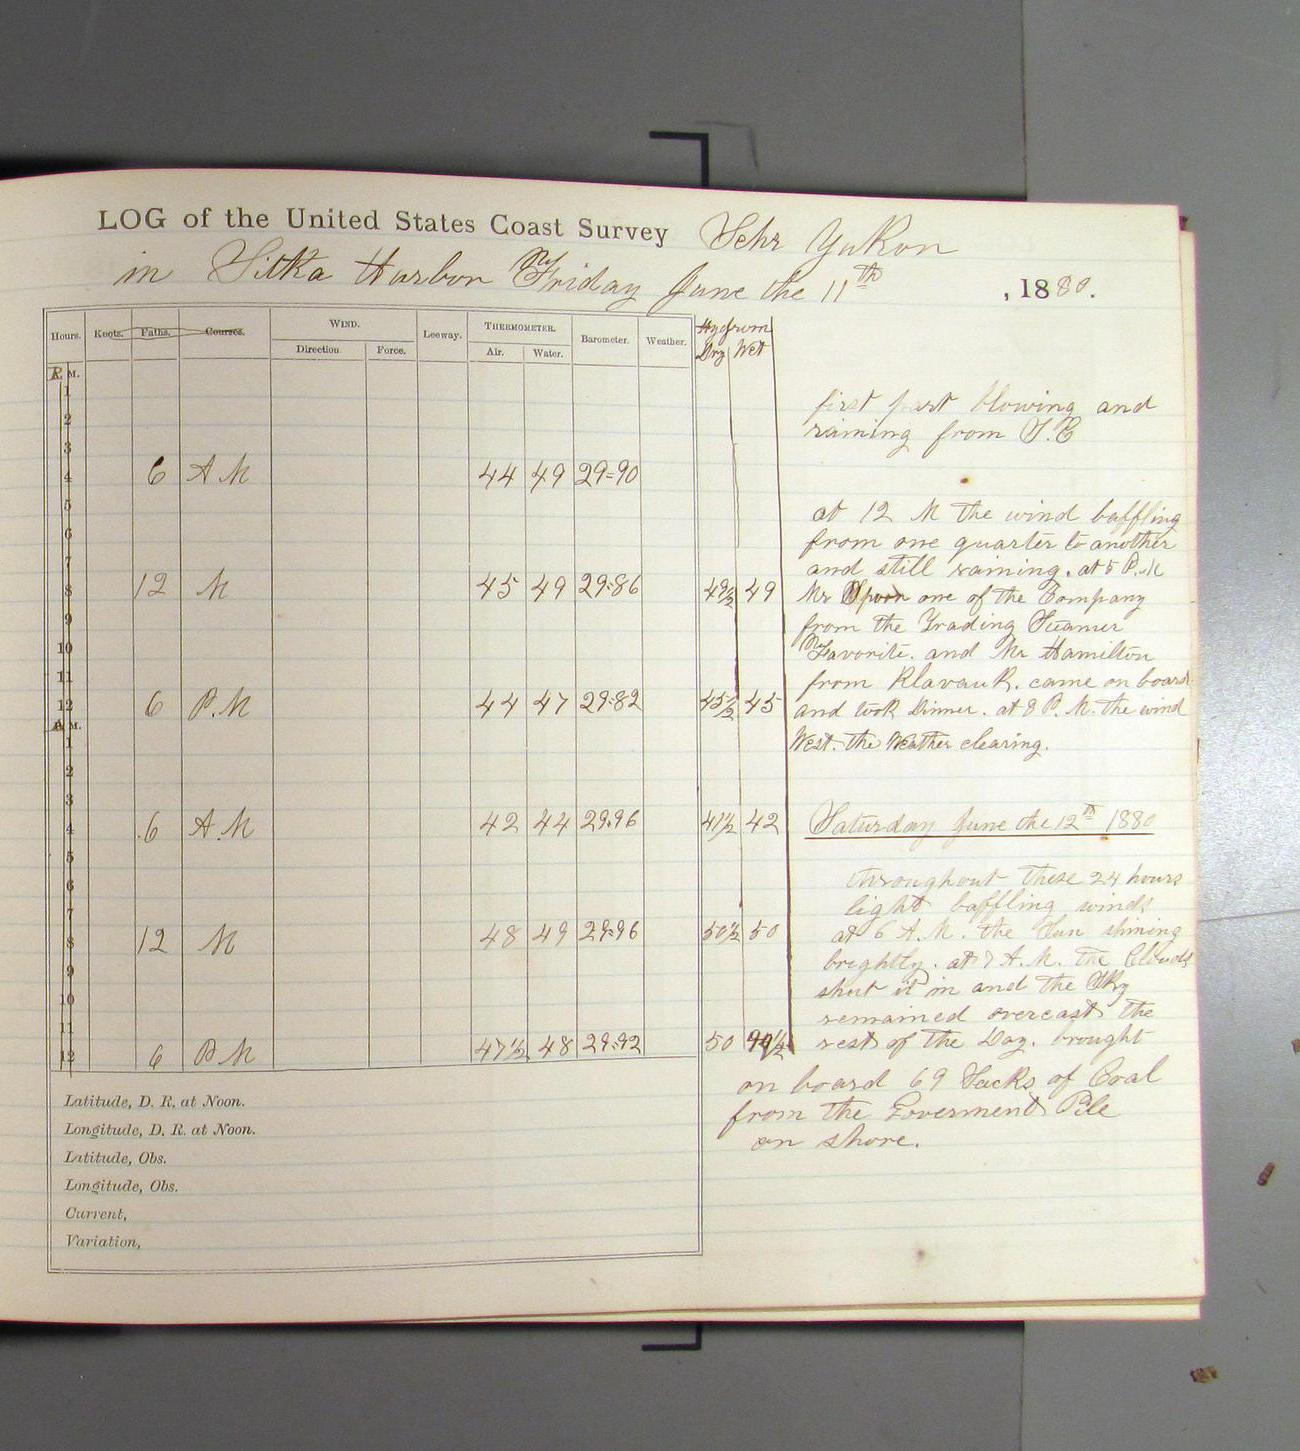 LOG of the United States Coast Survey Schr Yukon
in Sitka Harbor Friday June the 11th, 1880.
Hours. Knots. Faths. Courses. WIND. Direction. Force. Leeway. THERMOMETER. Air. Water. Barometer. Weather. Hygrom Dry Wet
M.
1
2
3
4 6 A M 44 49 29=90
5
6
7
8 12 M 45 49 29.86 49½ 49
9
10
11
12 6 P.M 44 47 29.82 45½ 45
M.
1
2
3
4 6 A.M 42 44 29.96 41½ 42
5
6
7
8 12 M 48 49 29.96 50½ 50
9
10
11
12 6 P M 47½ 48 29.92 50
Latitude, D. R. at Noon.
Longitude, D. R. at Noon.
Latitude, Obs.
Longitude, Obs.
Current,
Variation,
first part blowing and
raining from S.E
at 12 M the wind baffling
from one quarter to another
and still raining. at 5 P.M
Mr one of the Company
from the Trading Steamer
Favorite. and Mr Hamilton
from Klavauk. came on board
and took Dinner. at 8 P.M. the wind
West. the Weather clearing.
Saturday June the 12th 1880
throughout these 24 hours
light baffling winds
at 6 A.M. the Sun shining
brightly. at 7 A.M. the Clouds
shut it in and the Sky
remained overcast the
rest of the Day. brought
on board 69 Sacks of Coal
from the Goverment Pile
on shore.